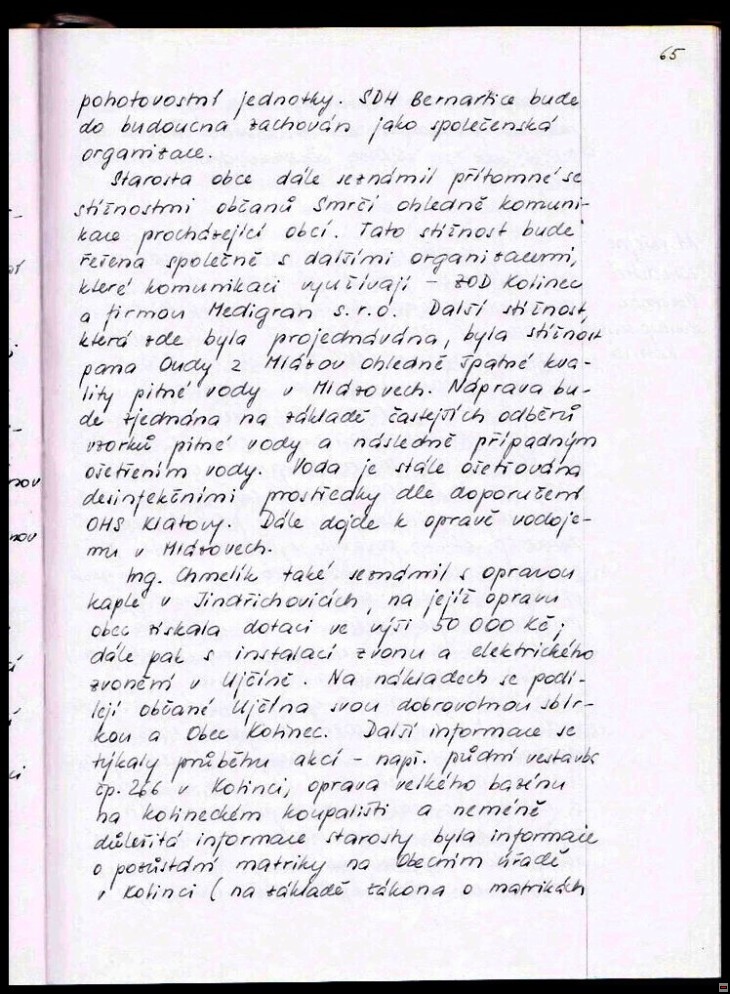 65
pohotovostní jednotky. SDH Bernartice bude
do budoucna zachován jako společenská
organizace.
Starosta obce dále seznámil přítomné se
stížnostmi občanů Smrčí ohledně komuni-
kace procházející obcí. Tato stížnost bude
řešena společně s dalšími organizacemi,
které komunikaci využívají – ZOD Kolinec
a firmou Medigran s.r.o. Další stížnost,
která zde byla projednávána, byla stížnost
pana Oudy z Mlázov ohledně špatné kva-
lity pitné vody v Mlázovech. Náprava bu-
de zjednána na základě častejších odběrů
vzorků pitné vody a následně případným
ošetřením vody. Voda je stále ošetřována
desinfekčními prostředky dle doporučení
OHS Klatovy. Dále dojde k opravě vodoje-
mu v Mlázovech.
Ing. Chmelík také seznámil s opravou
kaple v Jindřichovicích, na jejíž opravu
obec získala dotaci ve výši 50 000 Kč;
dále pak s instalací zvonu a elektrického
zvonění v Ujčíně. Na nákladech se podí-
lejí občané Ujčína svou dobrovolnou sbír-
kou a Obec Kolinec. Další informace se
týkaly průběhu akcí – např. půdní vestavba
čp. 266 v Kolinci, oprava velkého bazénu
na kolineckém koupališti a neméně
důležitá informace starosty byla informace
o pozůstání matriky na Obecním úřadě
v Kolinci (na základě zákona o matrikách
nov
nov